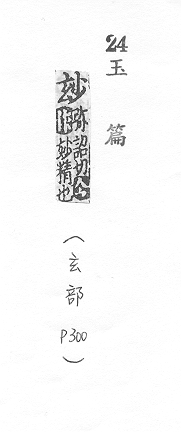 24
玉篇
玅
弥詔切今
妙精也
（玄部 P300）